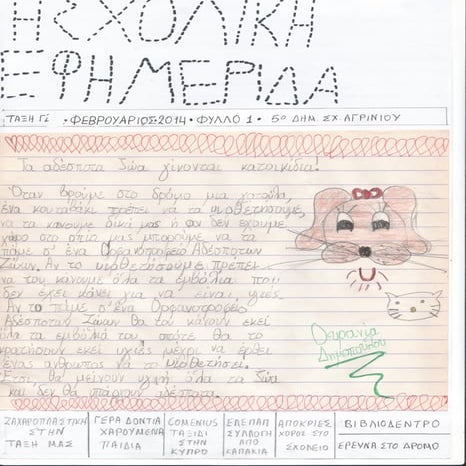 Η ΣΧΟΛΙΚΗ
ΕΦΗΜΕΡΙΔΑ
ΤΑΞΗ Γ΄ • ΦΕΒΡΟΥΑΡΙΟΣ 2014 • ΦΥΛΛΟ 1 • 5ο ΔΗΜ. ΣΧ. ΑΓΡΙΝΙΟΥ
Τα αδέσποτα ζώα γίνονται κατοικίδια!
Όταν βρούμε στο δρόμο μια γατούλα,
ένα κουταβάκι πρέπει να τα υιοθετήσουμε,
να τα κάνουμε δικά μας ή αν δεν έχουμε
χώρο στο σπίτι μας μπορούμε να τα
πάμε σ' ένα Ορφανοτροφείο Αδέσποτων
Ζώων. Αν το υιοθετήσουμε πρέπει
να του κάνουμε όλα τα εμβόλια που
δεν έχει κάνει για να είναι υγιές.
Αν το πάμε σ' ένα Ορφανοτροφείο
Αδέσποτων Ζώων θα του κάνουν εκεί
όλα τα εμβόλιά του οπότε θα το
κρατήσουν εκεί υγιές μέχρι να έρθει
ένας άνθρωπος να το υιοθετήσει.
Έτσι θα μείνουν υγιή όλα τα ζώα
και δεν θα υπάρχουν αδέσποτα.
Ουρανία
Δημοπούλου
ΖΑΧΑΡΟΠΛΑΣΤΙΚΗ ΣΤΗΝ ΤΑΞΗ ΜΑΣ
ΓΕΡΑ ΔΟΝΤΙΑ ΧΑΡΟΥΜΕΝΑ ΠΑΙΔΙΑ
COMENIUS ΤΑΞΙΔΙ ΣΤΗΝ ΚΥΠΡΟ
ΕΛΕΠΑΠ ΣΥΛΛΟΓΗ ΑΠΟ ΚΑΠΑΚΙΑ
ΑΠΟΚΡΙΕΣ ΧΟΡΟΣ ΣΤΟ ΣΧΟΛΕΙΟ
ΒΙΒΛΙΟΔΕΝΤΡΟ
ΕΡΕΥΝΑ ΣΤΟ ΔΡΟΜΟ